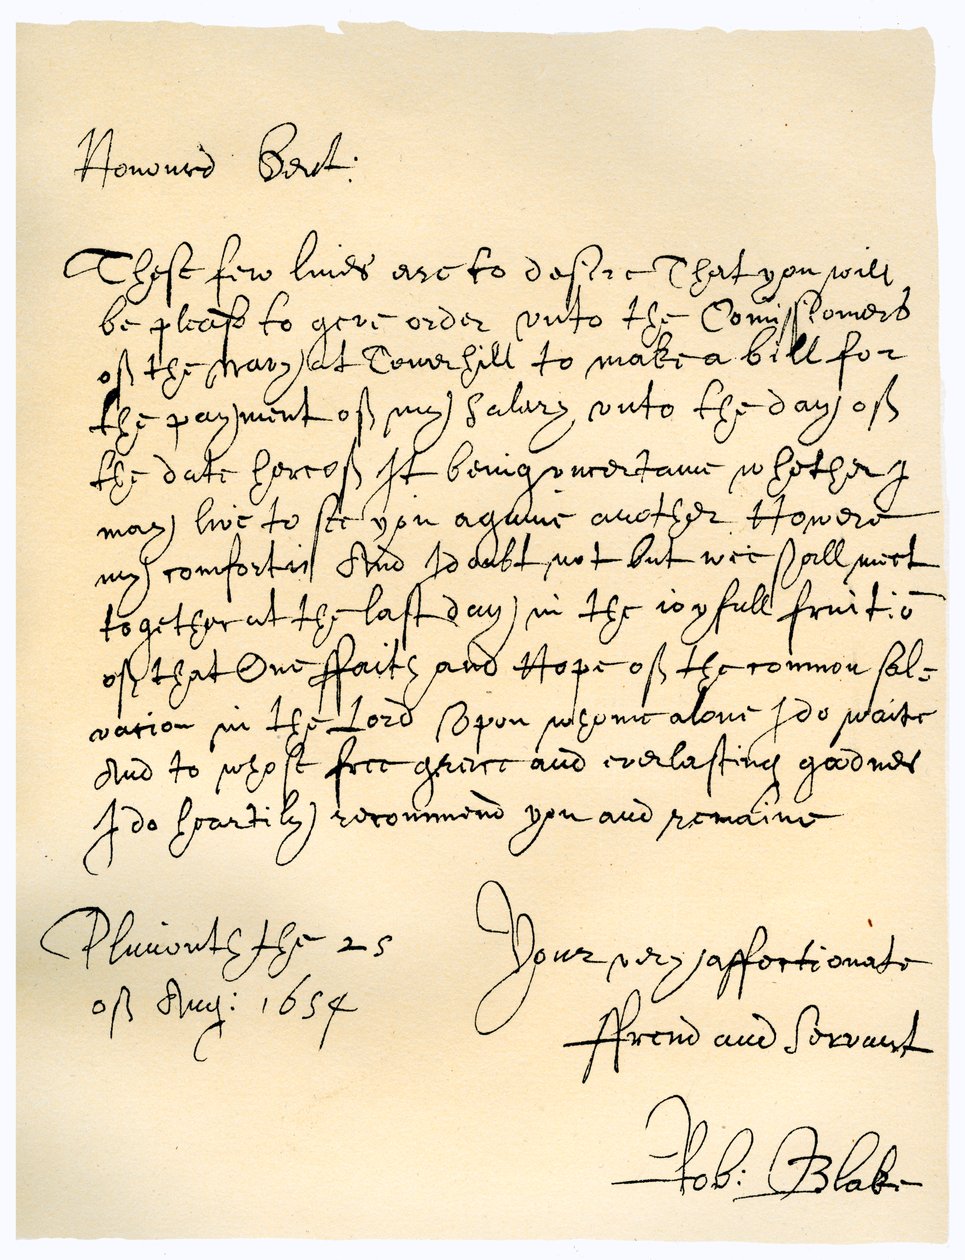 Honoured Gent:
These few lines are to desire That you will
be pleasd to geve order vnto the Comissioners
off the navy at Towerhill to make a bill for
the payment off my Salary vnto the day off
the date hereoff It being vncertaine whether I
may live to see you againe another Howere
my comfort is And I doubt not but wee shall meet
together at the last day in the ioyfull fruitiō
off that One ffaith and Hope off the common sal=
vation in the Lord Vpon whome alone I do waite
And to whose free grace and everlasting goodnes
I do heartily recommend you and remaine
Plimouth the 25
off Aug: 1654
Your very affectionate
ffrend and Servant
Rob: Blake